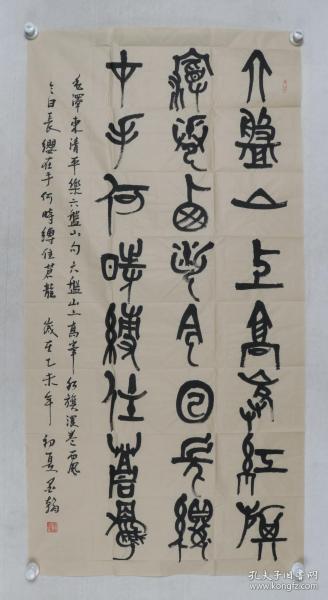 六盘山上高峰紅旗
漫卷西風今日長纓
在手何時縛住蒼龍
毛澤東清平樂六盤山句六盤山上高峰紅旗漫卷西風
今日長纓在手何時縛住蒼龍 歲在乙未年初夏 墨翰
孔夫子旧书网